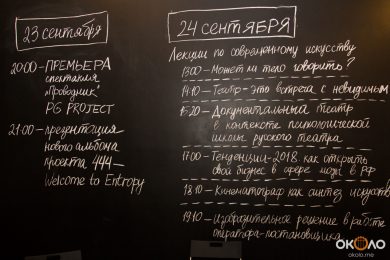 23 сентября
20:00 – ПРЕМЬЕРА
спектакля
"Проводник"
PG PROJECT
21:00 – презентация
нового альбома
проекта 444 –
Welcome to Entropy
24 СЕНТЯБРЯ
Лекции по современному искусству
13:00 – Может ли тело говорить?
14:10 – Театр – это встреча с невидимым
15:20 – Документальный театр
в контексте психологической
школы русского театра
17:00 – Тенденции-2018. как открыть
свой бизнес в сфере моды в РФ
18:10 – Кинематограф как синтез искусств
19:10 – Изобразительное решение в работе
оператора-постановщика
ОКОЛО
okolo.me